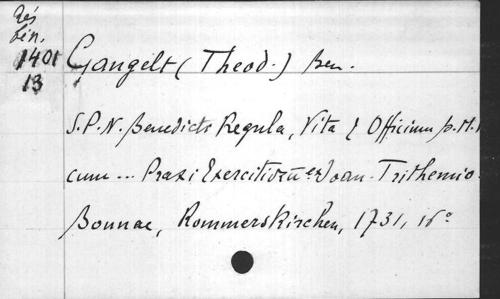 Rés
bén.
1401
13
Gangelt (Theod.) Ben.
S.P.N. Benedicti Regula, Vita & Officium p. M.
cum ... Praxi Exercitiorū ex Joan. Trithemio.
Bonnae, Rommerskirchen, 1731, 16°